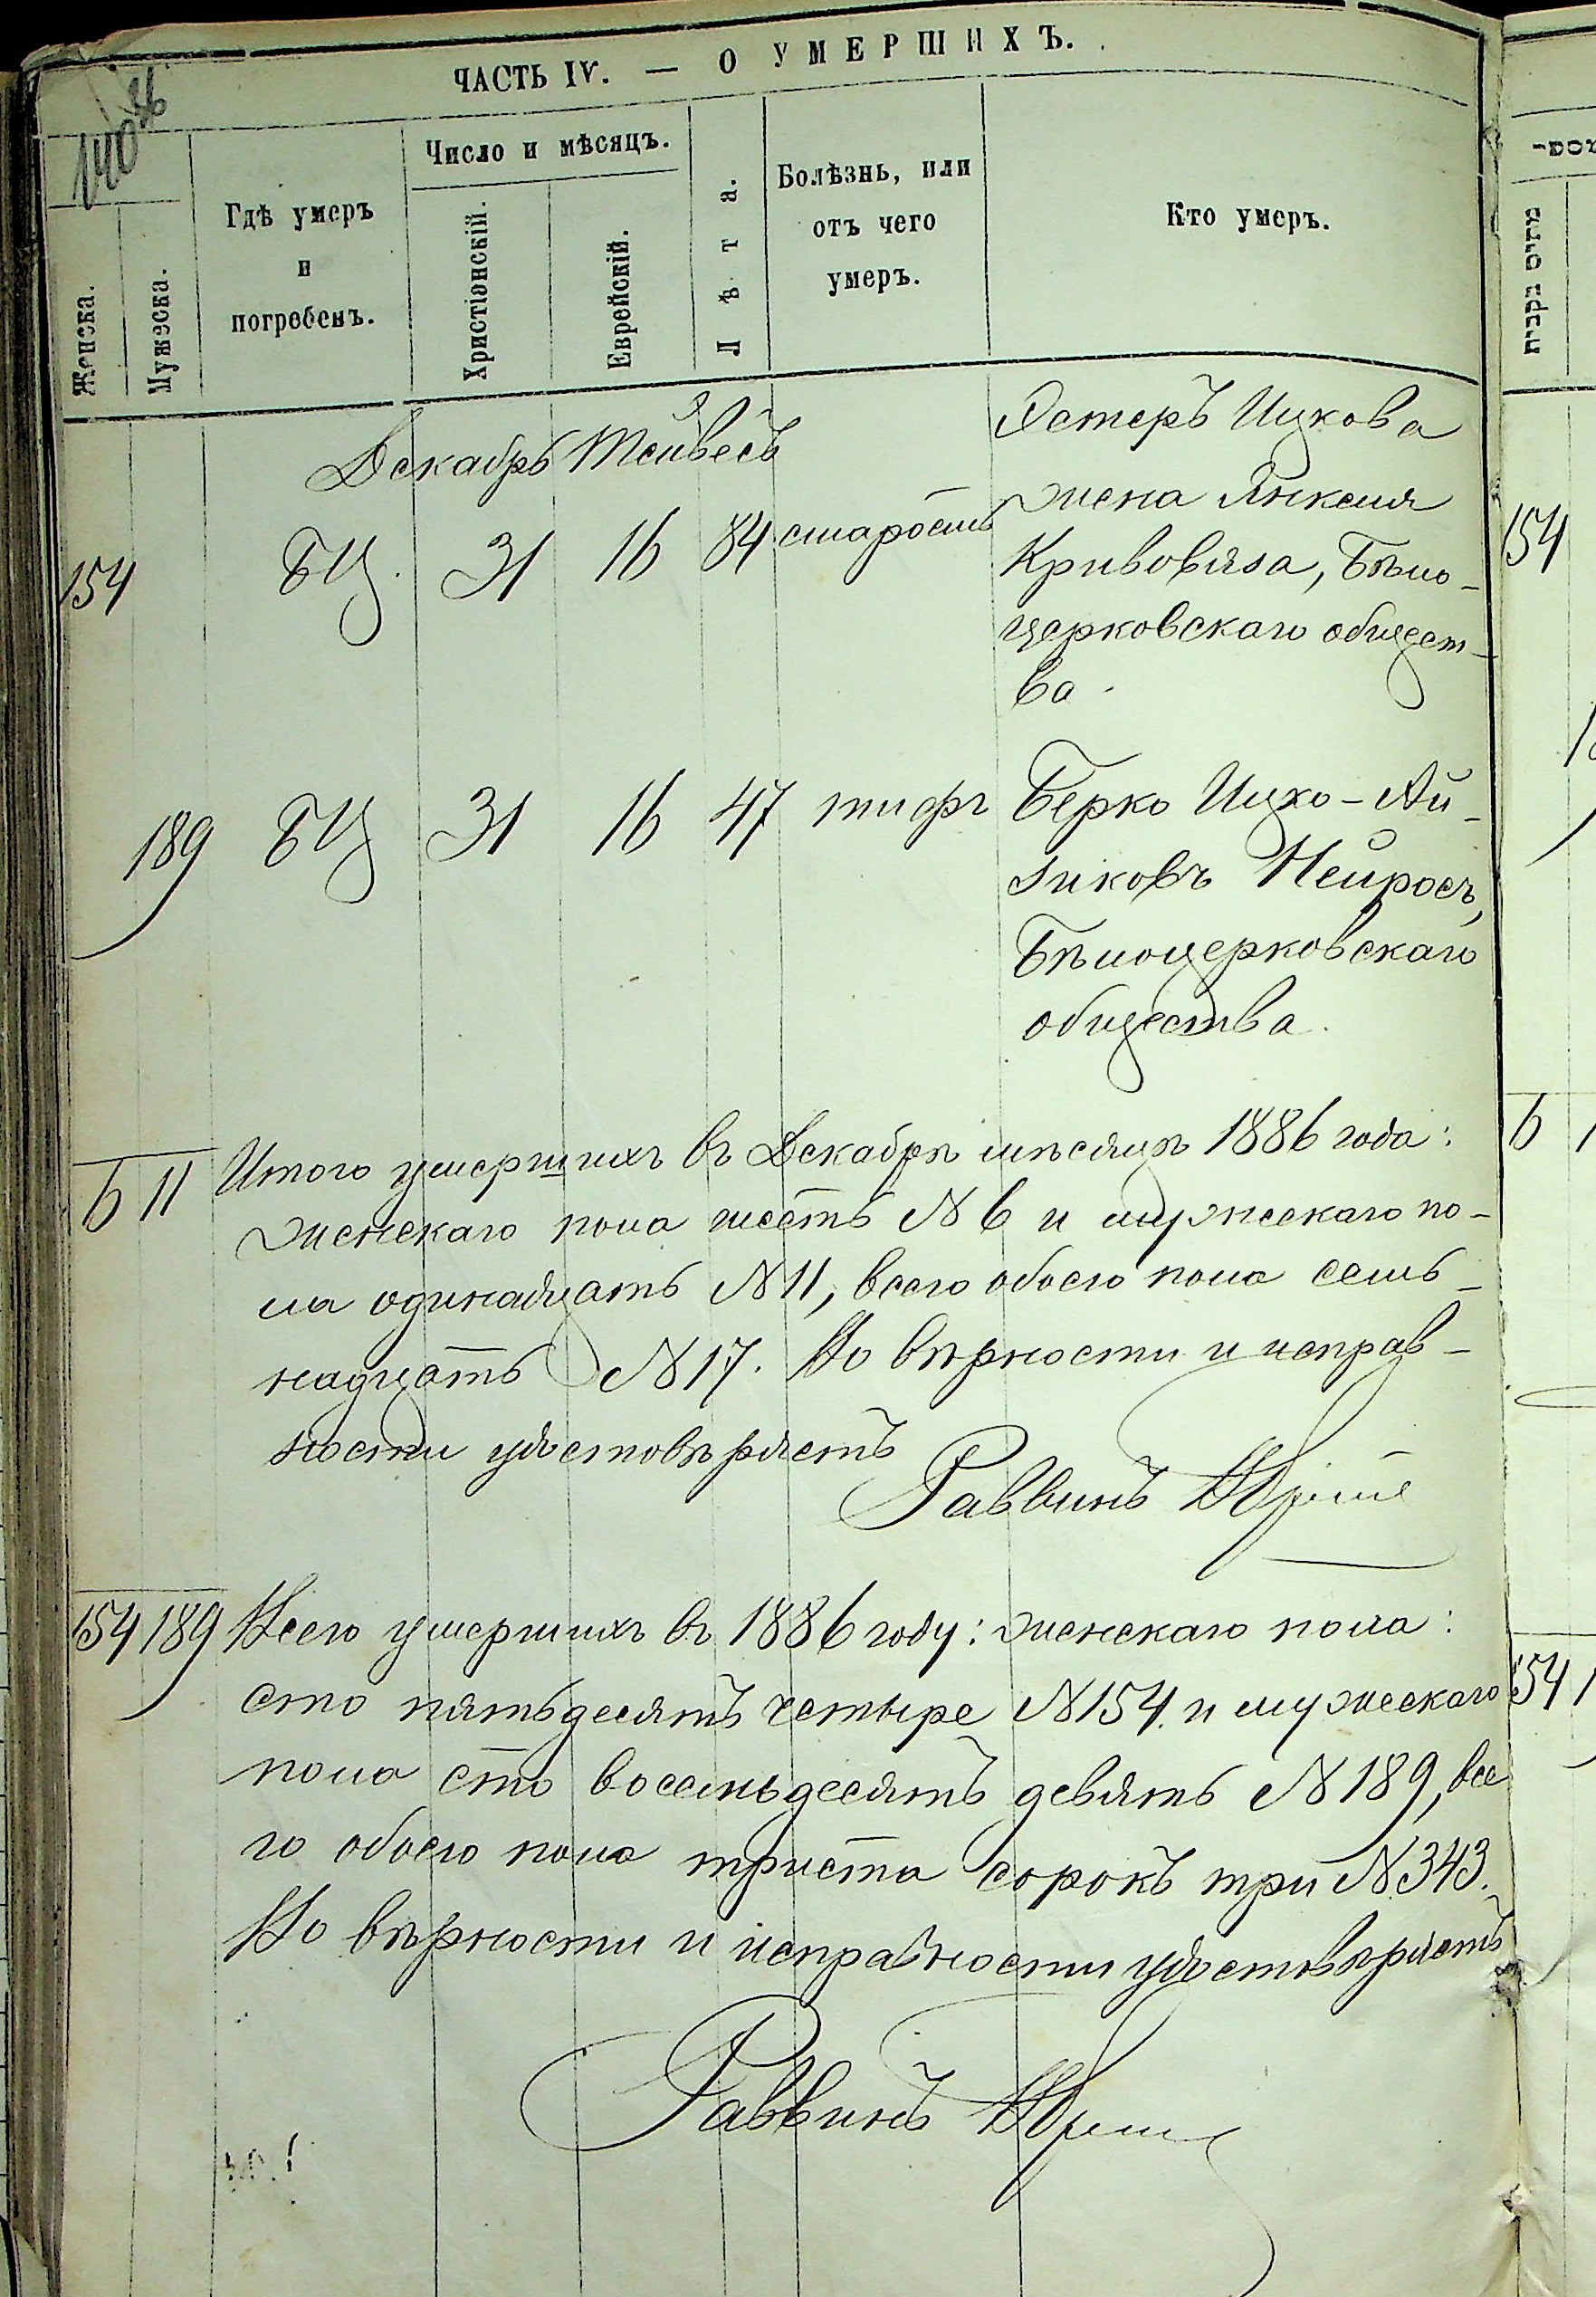 ЧАСТЬ IV. — О УМЕРШИХЪ.
140
Женска.
Мужеска.
Гдѣ умеръ
и
погребенъ.
Число и мѣсяцъ.
Христіонскій.
Еврейскій.
Лѣта.
Болѣзнь, или
отъ чего
умеръ.
Кто умеръ.
Декабрь Тейвесъ
154 БЦ. 31 16 84 старость
Эстеръ Ицкова
жена Янкеля
Кривовяза, Бѣло-
церковскаго общест-
ва.
189 БЦ 31 16 47 тифъ
Берко Ицко-Ай-
зиковъ Нейросъ,
Бѣлоцерковскаго
общества.
6 11 Итого умершихъ въ Декабрѣ мѣсяцѣ 1886 года:
женскаго пола шесть № 6 и мужескаго по-
ла одинадцать № 11, всего обоего пола семь-
надцать № 17. Во вѣрности и исправ-
ности удостовѣряетъ
Раввинъ
154 189 Всего умершихъ въ 1886 году: женскаго пола:
сто пятьдесятъ четыре № 154. и мужескаго
пола сто восемьдесятъ девять № 189, все
го обоего пола триста сорокъ три № 343.
Во вѣрности и исправности удостовѣряетъ
Раввинъ
154
6
154